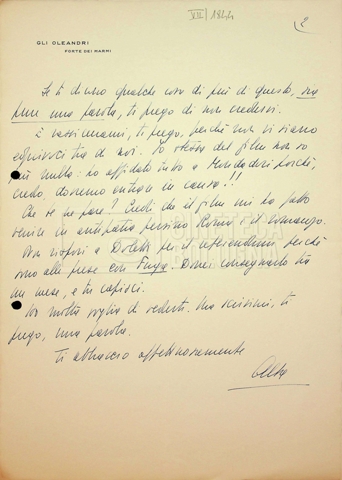 VII/1844
2
GLI OLEANDRI
FORTE DEI MARMI
Se ti dicono qualche cosa di più di questo, sia
pure una parola, ti prego di non crederci.
E rassicurami, ti prego, perché non vi siano
equivoci tra di noi. Io stessa del film non so
più nulla: ho affidato tutto a Mondadori perché,
credo, dovremo entrare in causa!!
Che te ne pare? Credi che il film mi ha fatto
venire in antipatia persino Remo e il romanzo.
Non risposi a Doletti per il referendum, perché
sono alle prese con Fuga. Dovrei consegnarlo tra
un mese, e tu capisci.
Ho molta voglia di vederti. Ma scrivimi, ti
prego, una parola.
Ti abbraccio affettuosamente
Alba